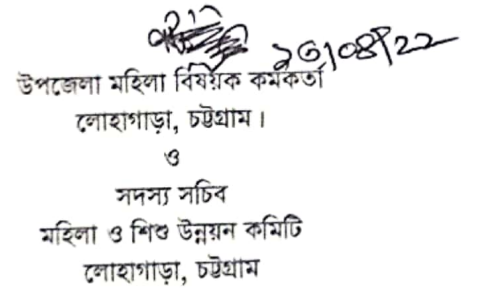 ২৩/০৪/22
উপজেলা মহিলা বিষয়ক কর্মকর্তা
লোহাগাড়া, চট্টগ্রাম।
ও
সদস্য সচিব
মহিলা ও শিশু উন্নয়ন কমিটি
লোহাগাড়া, চট্টগ্রাম